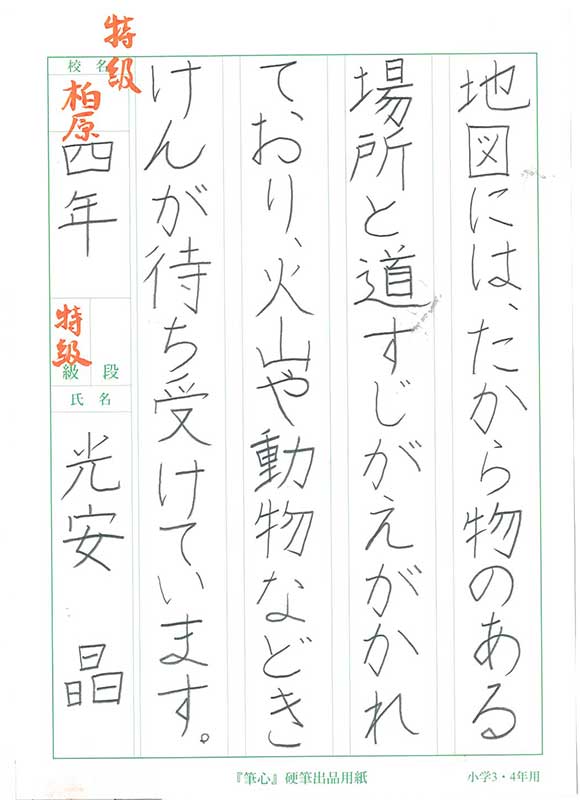 地図には、たから物のある
場所と道すじがえがかれ
ており、火山や動物などき
けんが待ち受けています。
特級
校名
柏原
四年
特級
級段
氏名
光安 晶
『筆心』硬筆出品用紙
小学3・4年用